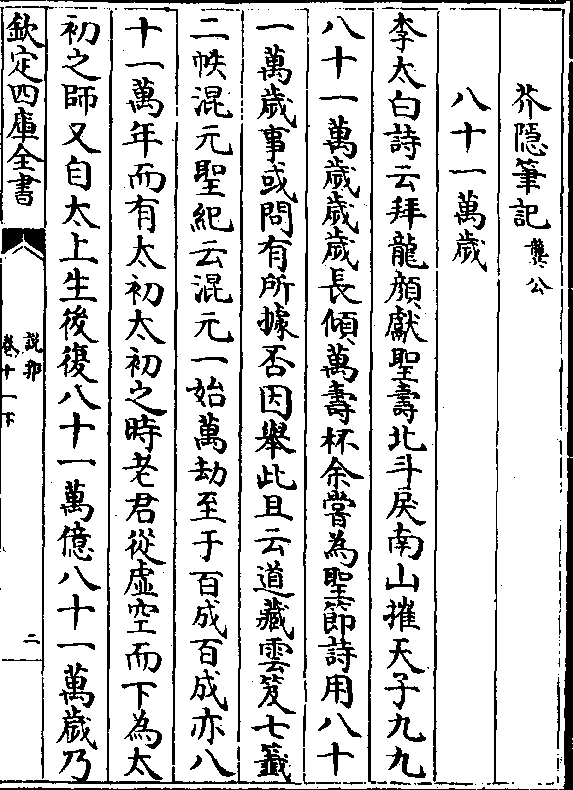 芥隠筆記龔公
八十一萬歲
李太白詩云拜龍顔獻聖壽北斗戾南山摧天子九九
八十一萬歲歲歲長傾萬壽杯余嘗為聖節詩用八十
一萬歲事或問有所據否因舉此且云道藏雲笈七籖
二帙混元聖紀云混元一始萬劫至于百成百成亦八
十一萬年而有太初太初之時老君從虛空而下為太
初之師又自太上生後復八十一萬億八十一萬歲乃
欽定四庫全書
說郛
卷十一下
二